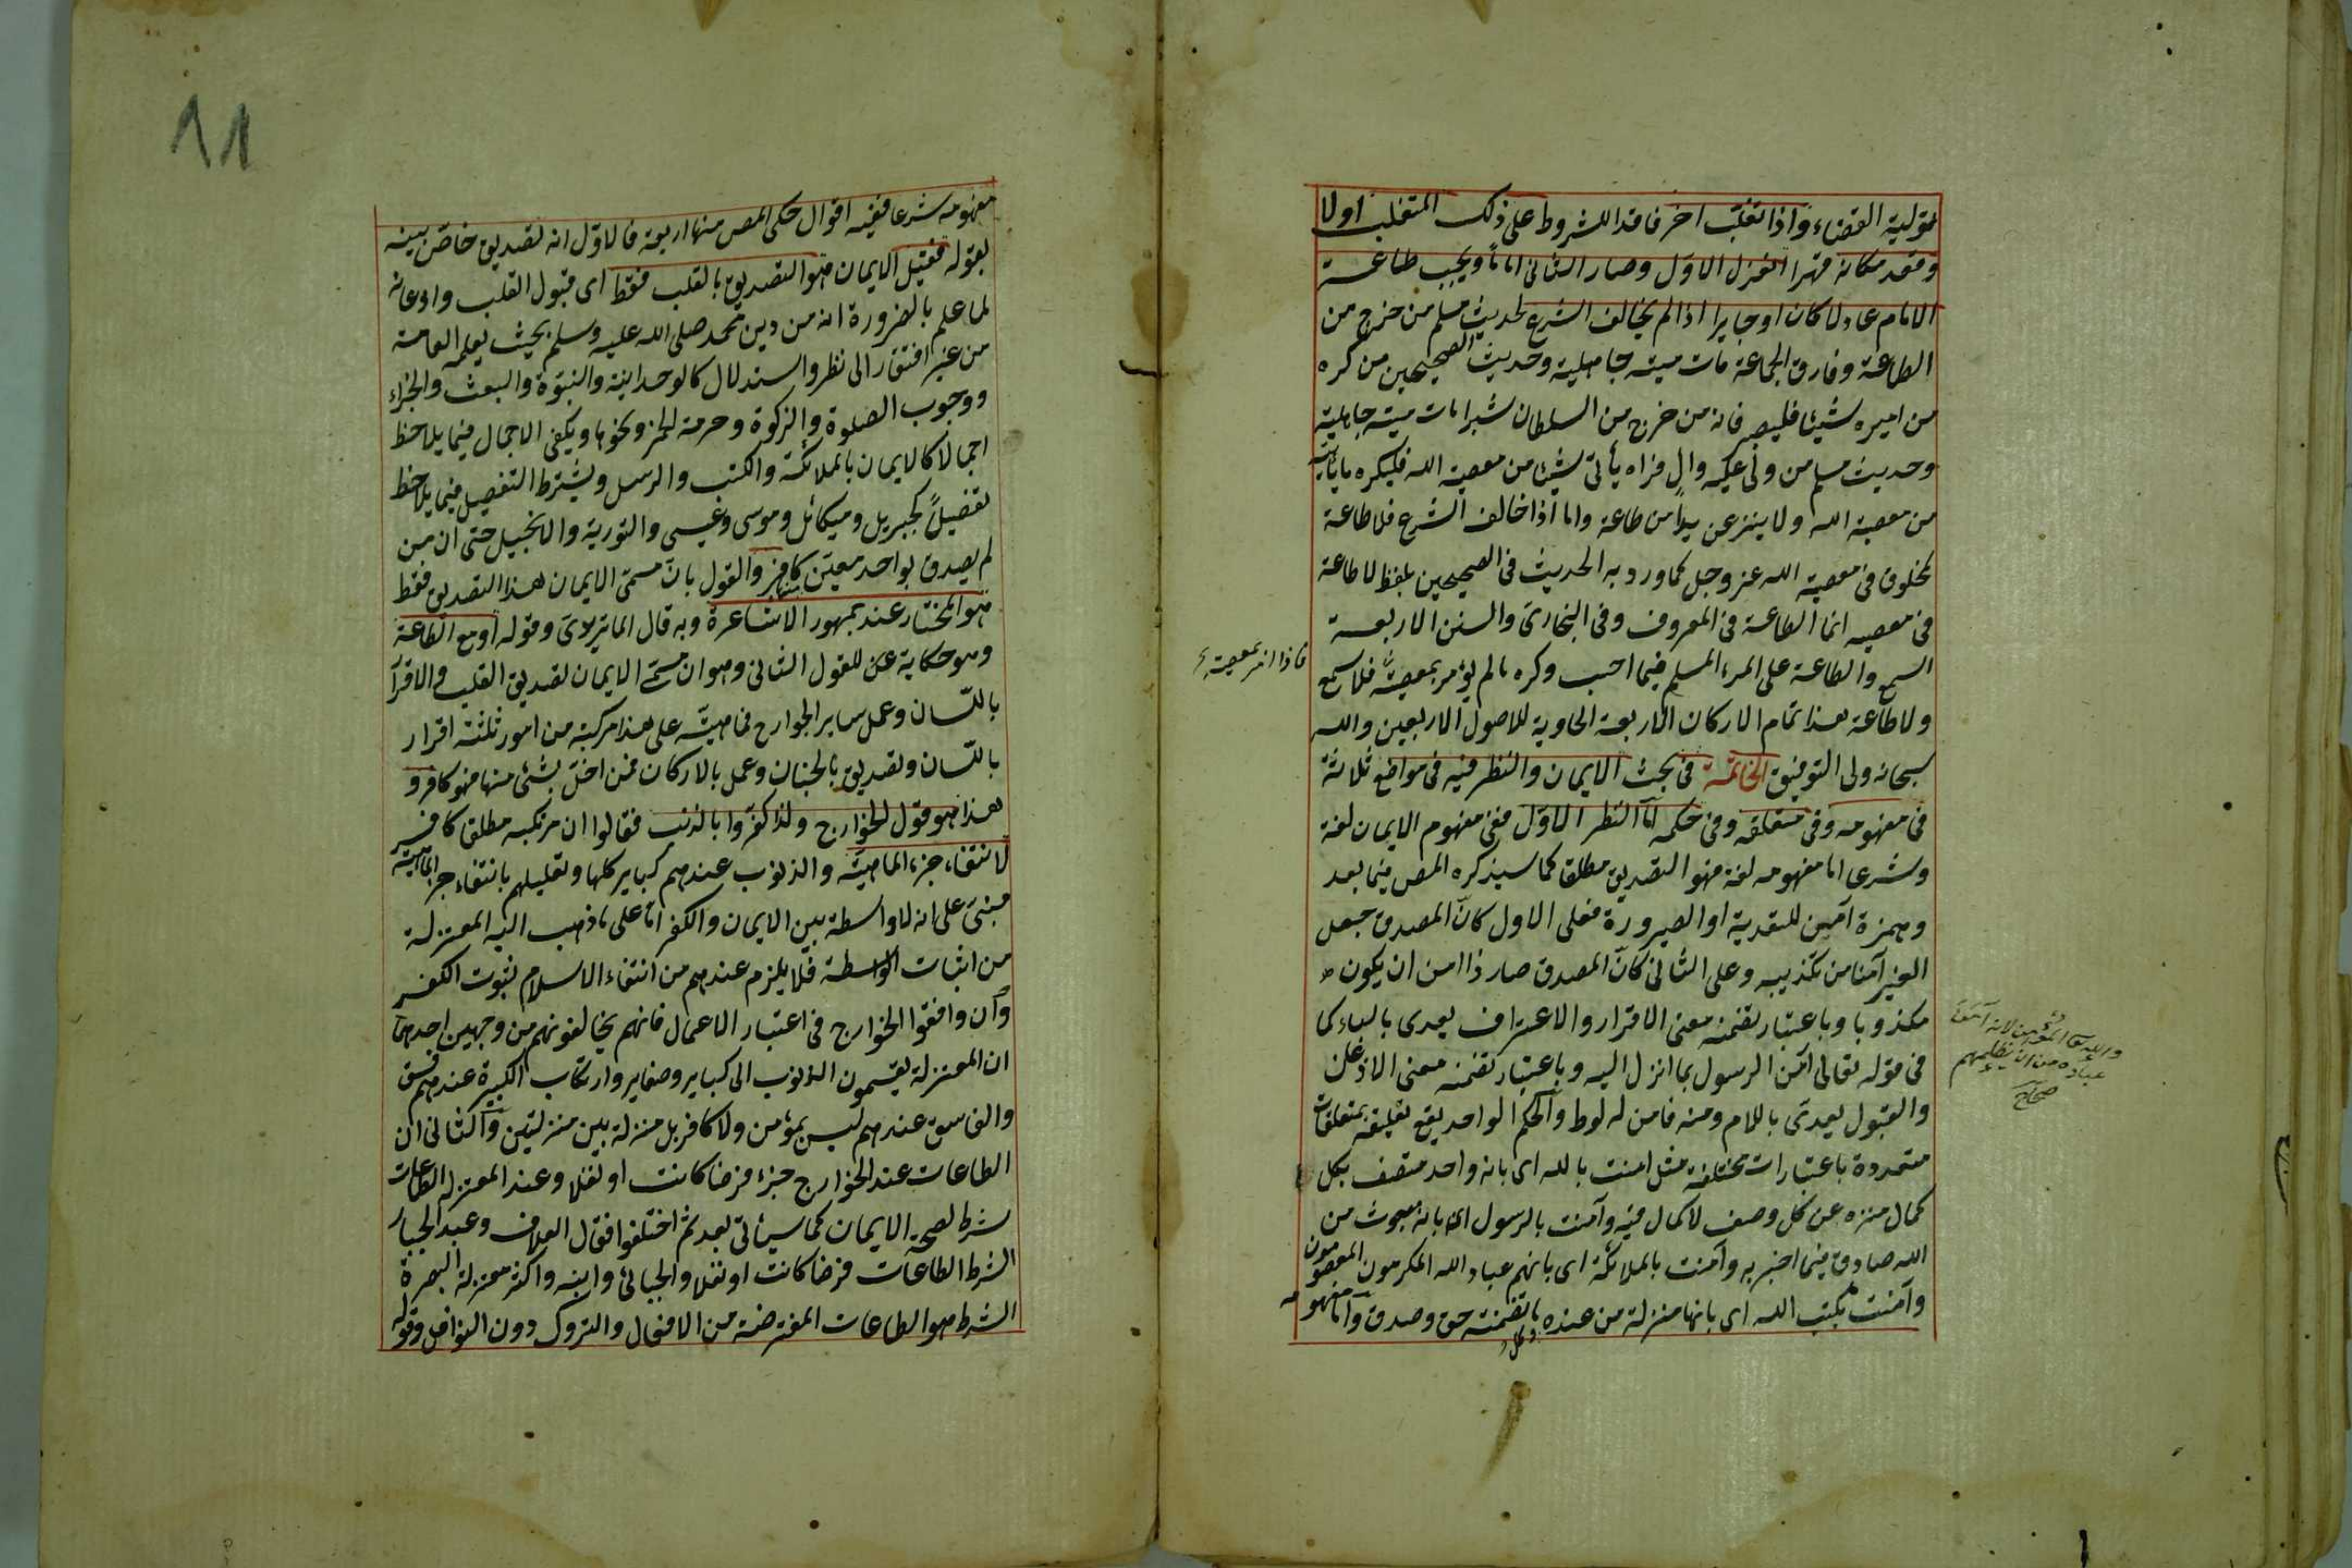 بتولية القضاء واذا تغلب اخر فاقد الشروط على ذلك المتغلب اولا
وقعد مكانه قهرا انعزل الاول وصار الثانى اماما ويجب طاعة
الامام عادلا كان او جايرا اذا لم يخالف الشرع لحديث مسلم من خرج من
الطاعة وفارق الجماعة مات ميتة جاهلية وحديث الصحيحين من كره
من اميره شيئا فليصبر فانه من خرج من السلطان شبرا مات ميتة جاهلية
وحديث مسلم من ولى عليه وال فراه يأتى شيئا من معصية الله فليكره ما يأتيه
من معصية الله ولا ينزعن يدا من طاعة واما اذا خالف الشرع فلا طاعة
لمخلوق فى معصية الله عز وجل كما ورد به الحديث فى الصحيحين بلفظ لا طاعة
فى معصيه انما الطاعة فى المعروف وفى البخارى والسنن الاربعة
السمع والطاعة على المرء المسلم فيما احب وكره ما لم يؤمر بمعصية فلا سمع
فاذا امر بمعصية
ولا طاعة هذا تمام الاركان الاربعة الحاوية للاصول الاربعين والله
سبحانه ولى التوفيق الخاتمة فى بحث الايمان والنظر فيه فى مواضع ثلاثة
فى مفهومه وفى متعلقه وفى حكمه اما النظر الاول ففى مفهوم الايمان لغة
وشرعا اما مفهومه لغة فهو التصديق مطلقا كما سيذكره المص فيما بعد
وهمزة آمن للتعدية او الصيرورة فعلى الاول كأن المصدق جعل
الغير آمنا من تكذيبه وعلى الثانى كأن المصدق صار ذا امن ان يكون
مكذوبا وباعتبار تضمنه معنى الاقرار والاعتراف يعدى بالباء كما
فى قوله تعالى آمن الرسول بما انزل اليه وباعتبار تضمنه معنى الاذعان
والقبول يعدى باللام ومنه فامن له لوط والحكم الواحد يقع تعليقه بمتعلقات
متعددة باعتبارات مختلفة مثل امنت بالله اى بانه واحد متصف بكل
كمال منزه عن كل وصف لا كمال فيه وآمنت بالرسول اى بانه مبعوث من
الله صادق فيما اخبر به وآمنت بالملائكة اى بانهم عباد الله المكرمون المعصومون
وآمنت بكتب الله اى بانها منزلة من عنده ما تضمنته حق وصدق واما مفهومه
وكل
والله تعالى المؤمن لانه آمن
عباده من ان يظلمهم
صحاح
11
مفهومه شرعا ففيه اقوال حكى المص منها اربعة فالاول انه تصديق خاص بينه
بقوله فقيل الايمان هو التصديق بالقلب فقط اى قبول القلب واذعانه
لما علم بالضرورة انه من دين محمد صلى الله عليه وسلم بحيث يعلمه العامة
من غير افتقار الى نظر واستدلال كالوحدانية والنبوة والبعث والجزاء
ووجوب الصلوة والزكوة وحرمة الخمر ونحوها ويكفى الاجمال فيما يلاحظ
اجمالا كالايمان بالملائكة والكتب والرسل ويشترط التفصيل فيما يلاحظ
تفصيلا كجبريل وميكائل وموسى وعيسى والتورية والانجيل حتى ان من
لم يصدق بواحد معين منها كافر والقول بان مسمى الايمان هذا التصديق فقط
هو المختار عند جمهور الاشاعرة وبه قال الماتريدى وقوله او مع الطاعة
وهو حكاية عن للقول الثانى وهو ان مسمى الايمان تصديق القلب والاقرار
باللسان وعمل ساير الجوارح فماهيته على هذا مركبة من امور ثلثة اقرار
باللسان وتصديق بالجنان وعمل بالاركان فمن اخل بشئ منها فهو كافر و
هذا هو قول الخوارج ولذا كفروا بالذنب فقالوا ان مرتكبه مطلقا كافر
لانتفاء جزء الماهية والذنوب عندهم كباير كلها وتعليلهم بانتفاء جزء الماهية
مبنى على انه لا واسطة بين الايمان والكفر اما على ما ذهب اليه المعتزلة
من اثبات الواسطة فلا يلزم عندهم من انتفاء الاسلام ثبوت الكفر
وان وافقوا الخوارج فى اعتبار الاعمال فانهم يخالفونهم من وجهين احدهما
ان المعتزلة يقسمون الذنوب الى كباير وصغاير وارتكاب الكبيرة عندهم فسق
والفاسق عندهم ليس بمؤمن ولا كافر بل منزلة بين منزلتين والثانى ان
الطاعات عند الخوارج جزء فرضا كانت او نفلا وعند المعتزلة الطاعات
شرط لصحة الايمان كما سيأتى بعد ثم اختلفوا فقال العلاف وعبد الجبار
الشرط الطاعات فرضا كانت او نفلا والجبائى وابنه واكثر معتزلة البصرة
الشرط هو الطاعات المفترضة من الافعال والتروك دون النوافل وقوله